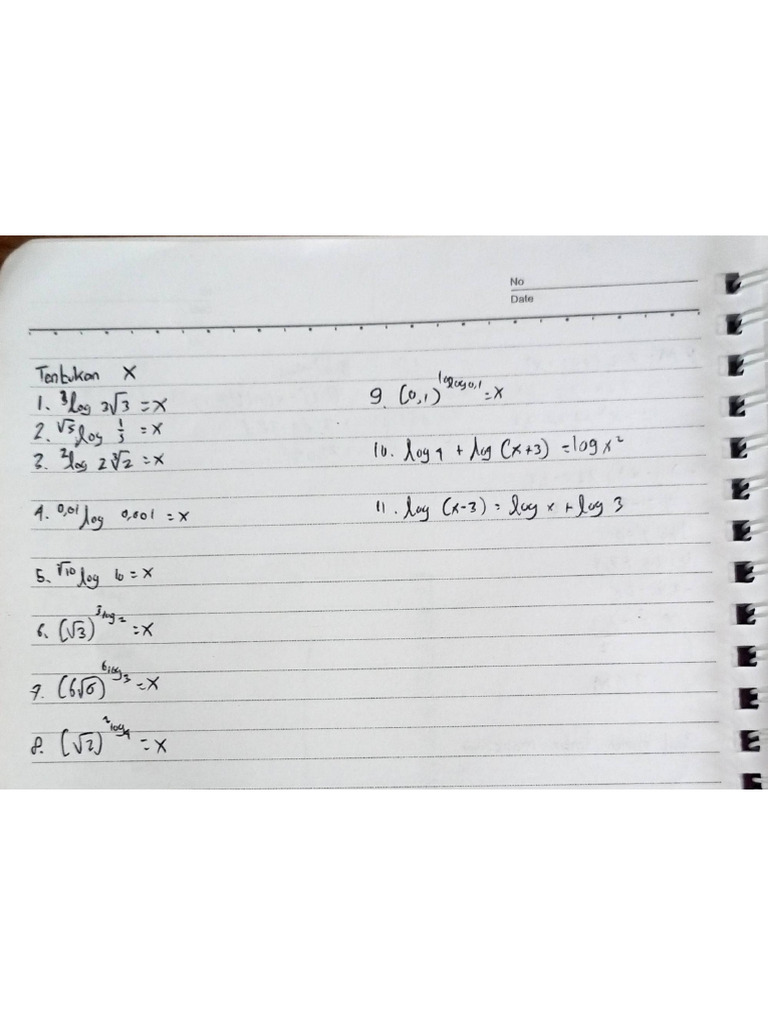 No
Date
Tentukan X
1. ³log 3√3 = x
2. √3log 1/3 = x
3. ²log 2∛2 = x
4. ⁰,⁰¹log 0,001 = x
5. √10log 10 = x
6. (√3)^³log 2 = x
7. (6√6)^⁶log 3 = x
8. (√2)^²log 4 = x
9. (0,1)^¹⁰log 0,1 = x
10. log 4 + log (x+3) = log x²
11. log (x-3) = log x + log 3